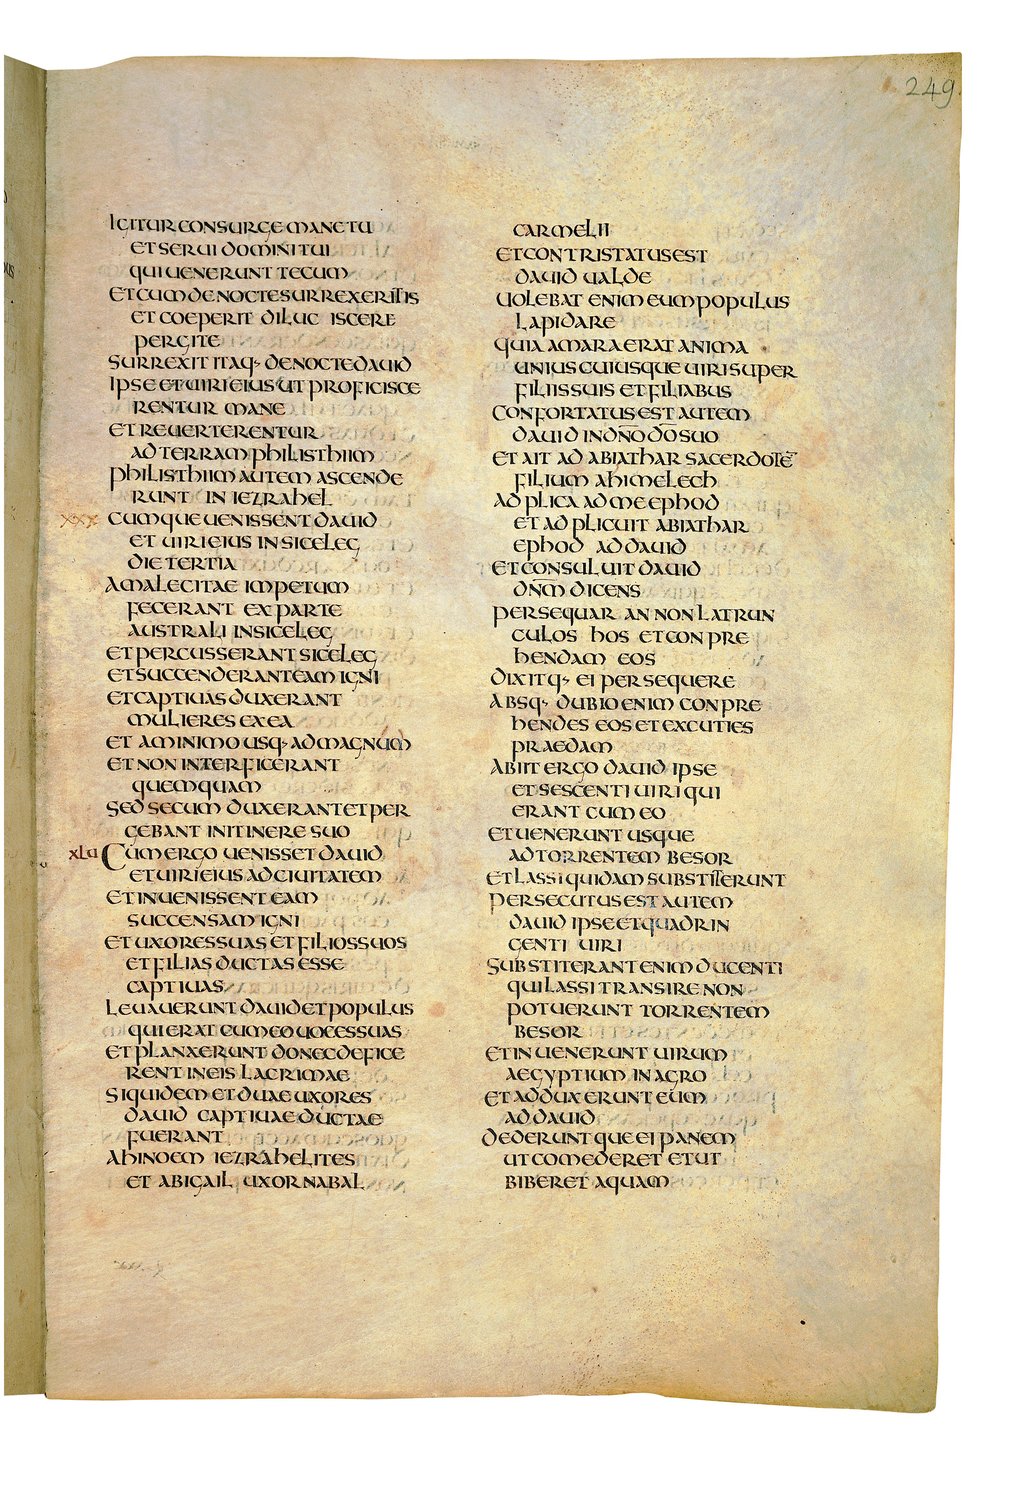 249
IGITUR CONSURGE MANE TU
ET SERUI DOMINI TUI
QUI UENERUNT TECUM
ET CUM DE NOCTE SURREXERITIS
ET COEPERIT DILUCISCERE
PERGITE
SURREXIT ITAQ· DE NOCTE DAUID
IPSE ET UIRI EIUS UT PROFICISCE
RENTUR MANE
ET REUERTERENTUR
AD TERRAM PHILISTHIIM
PHILISTHIIM AUTEM ASCENDE
RUNT IN IEZRAHEL
XXX CUMQUE UENISSENT DAUID
ET UIRI EIUS IN SICELEG
DIE TERTIA
AMALECITAE IMPETUM
FECERANT EX PARTE
AUSTRALI IN SICELEG
ET PERCUSSERANT SICELEG
ET SUCCENDERANT EAM IGNI
ET CAPTIUAS DUXERANT
MULIERES EX EA
ET A MINIMO USQ· AD MAGNUM
ET NON INTERFICERANT
QUEMQUAM
SED SECUM DUXERANT ET PER
GEBANT IN ITINERE SUO
XLU CUM ERGO UENISSET DAUID
ET UIRI EIUS AD CIUITATEM
ET INUENISSENT EAM
SUCCENSAM IGNI
ET UXORES SUAS ET FILIOS SUOS
ET FILIAS DUCTAS ESSE
CAPTIUAS
LEUAUERUNT DAUID ET POPULUS
QUI ERAT CUM EO UOCES SUAS
ET PLANXERUNT DONEC DEFICE
RENT IN EIS LACRIMAE
SIQUIDEM ET DUAE UXORES
DAUID CAPTIUAE DUCTAE
FUERANT
AHINOEM IEZRAHELITES
ET ABIGAIL UXOR NABAL
CARMELII
ET CONTRISTATUS EST
DAUID UALDE
UOLEBAT ENIM EUM POPULUS
LAPIDARE
QUIA AMARA ERAT ANIMA
UNIUSCUIUSQUE UIRI SUPER
FILIIS SUIS ET FILIABUS
CONFORTATUS EST AUTEM
DAUID IN DN̅O DO̅ SUO
ET AIT AD ABIATHAR SACERDOTE̅
FILIUM AHIMELECH
ADPLICA AD ME EPHOD
ET ADPLICUIT ABIATHAR
EPHOD AD DAUID
ET CONSULUIT DAUID
DN̅M DICENS
PERSEQUAR AN NON LATRUN
CULOS HOS ET CONPRE
HENDAM EOS
DIXITQ· EI PERSEQUERE
ABSQ· DUBIO ENIM CONPRE
HENDES EOS ET EXCUTIES
PRAEDAM
ABIIT ERGO DAUID IPSE
ET SESCENTI UIRI QUI
ERANT CUM EO
ET UENERUNT USQUE
AD TORRENTEM BESOR
ET LASSI QUIDAM SUBSTITERUNT
PERSECUTUS EST AUTEM
DAUID IPSE ET QUADRIN
GENTI UIRI
SUBSTITERANT ENIM DUCENTI
QUI LASSI TRANSIRE NON
POTUERUNT TORRENTEM
BESOR
ET INUENERUNT UIRUM
AEGYPTIUM IN AGRO
ET ADDUXERUNT EUM
AD DAUID
DEDERUNTQUE EI PANEM
UT COMEDERET ET UT
BIBERET AQUAM